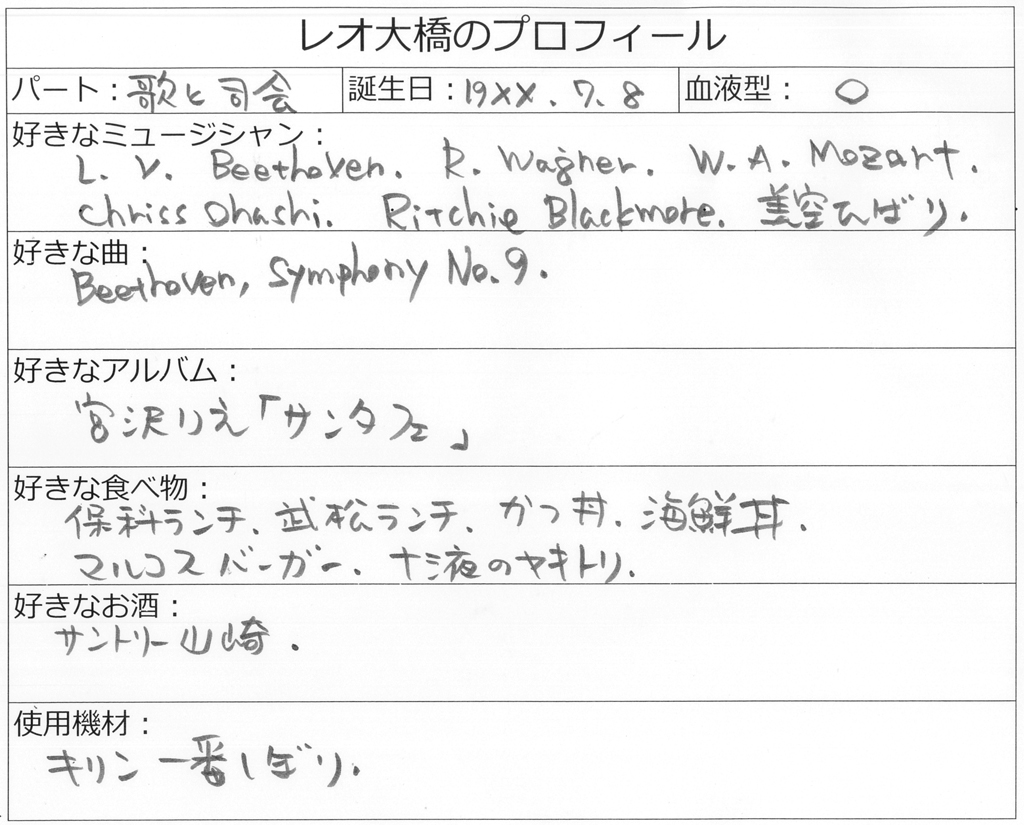 レオ大橋のプロフィール
パート：歌と司会 誕生日：19XX．7．8 血液型： O
好きなミュージシャン：
L. V. Beethoven. R. Wagner. W. A. Mozart.
Chriss Ohashi. Ritchie Blackmore. 美空ひばり.
好きな曲：
Beethoven, Symphony No. 9.
好きなアルバム：
宮沢りえ「サンタフェ」
好きな食べ物：
保科ランチ、武松ランチ、かつ丼、海鮮丼.
マルコスバーガー、十三夜のヤキトリ.
好きなお酒：
サントリー山崎.
使用機材：
キリン一番しぼり.